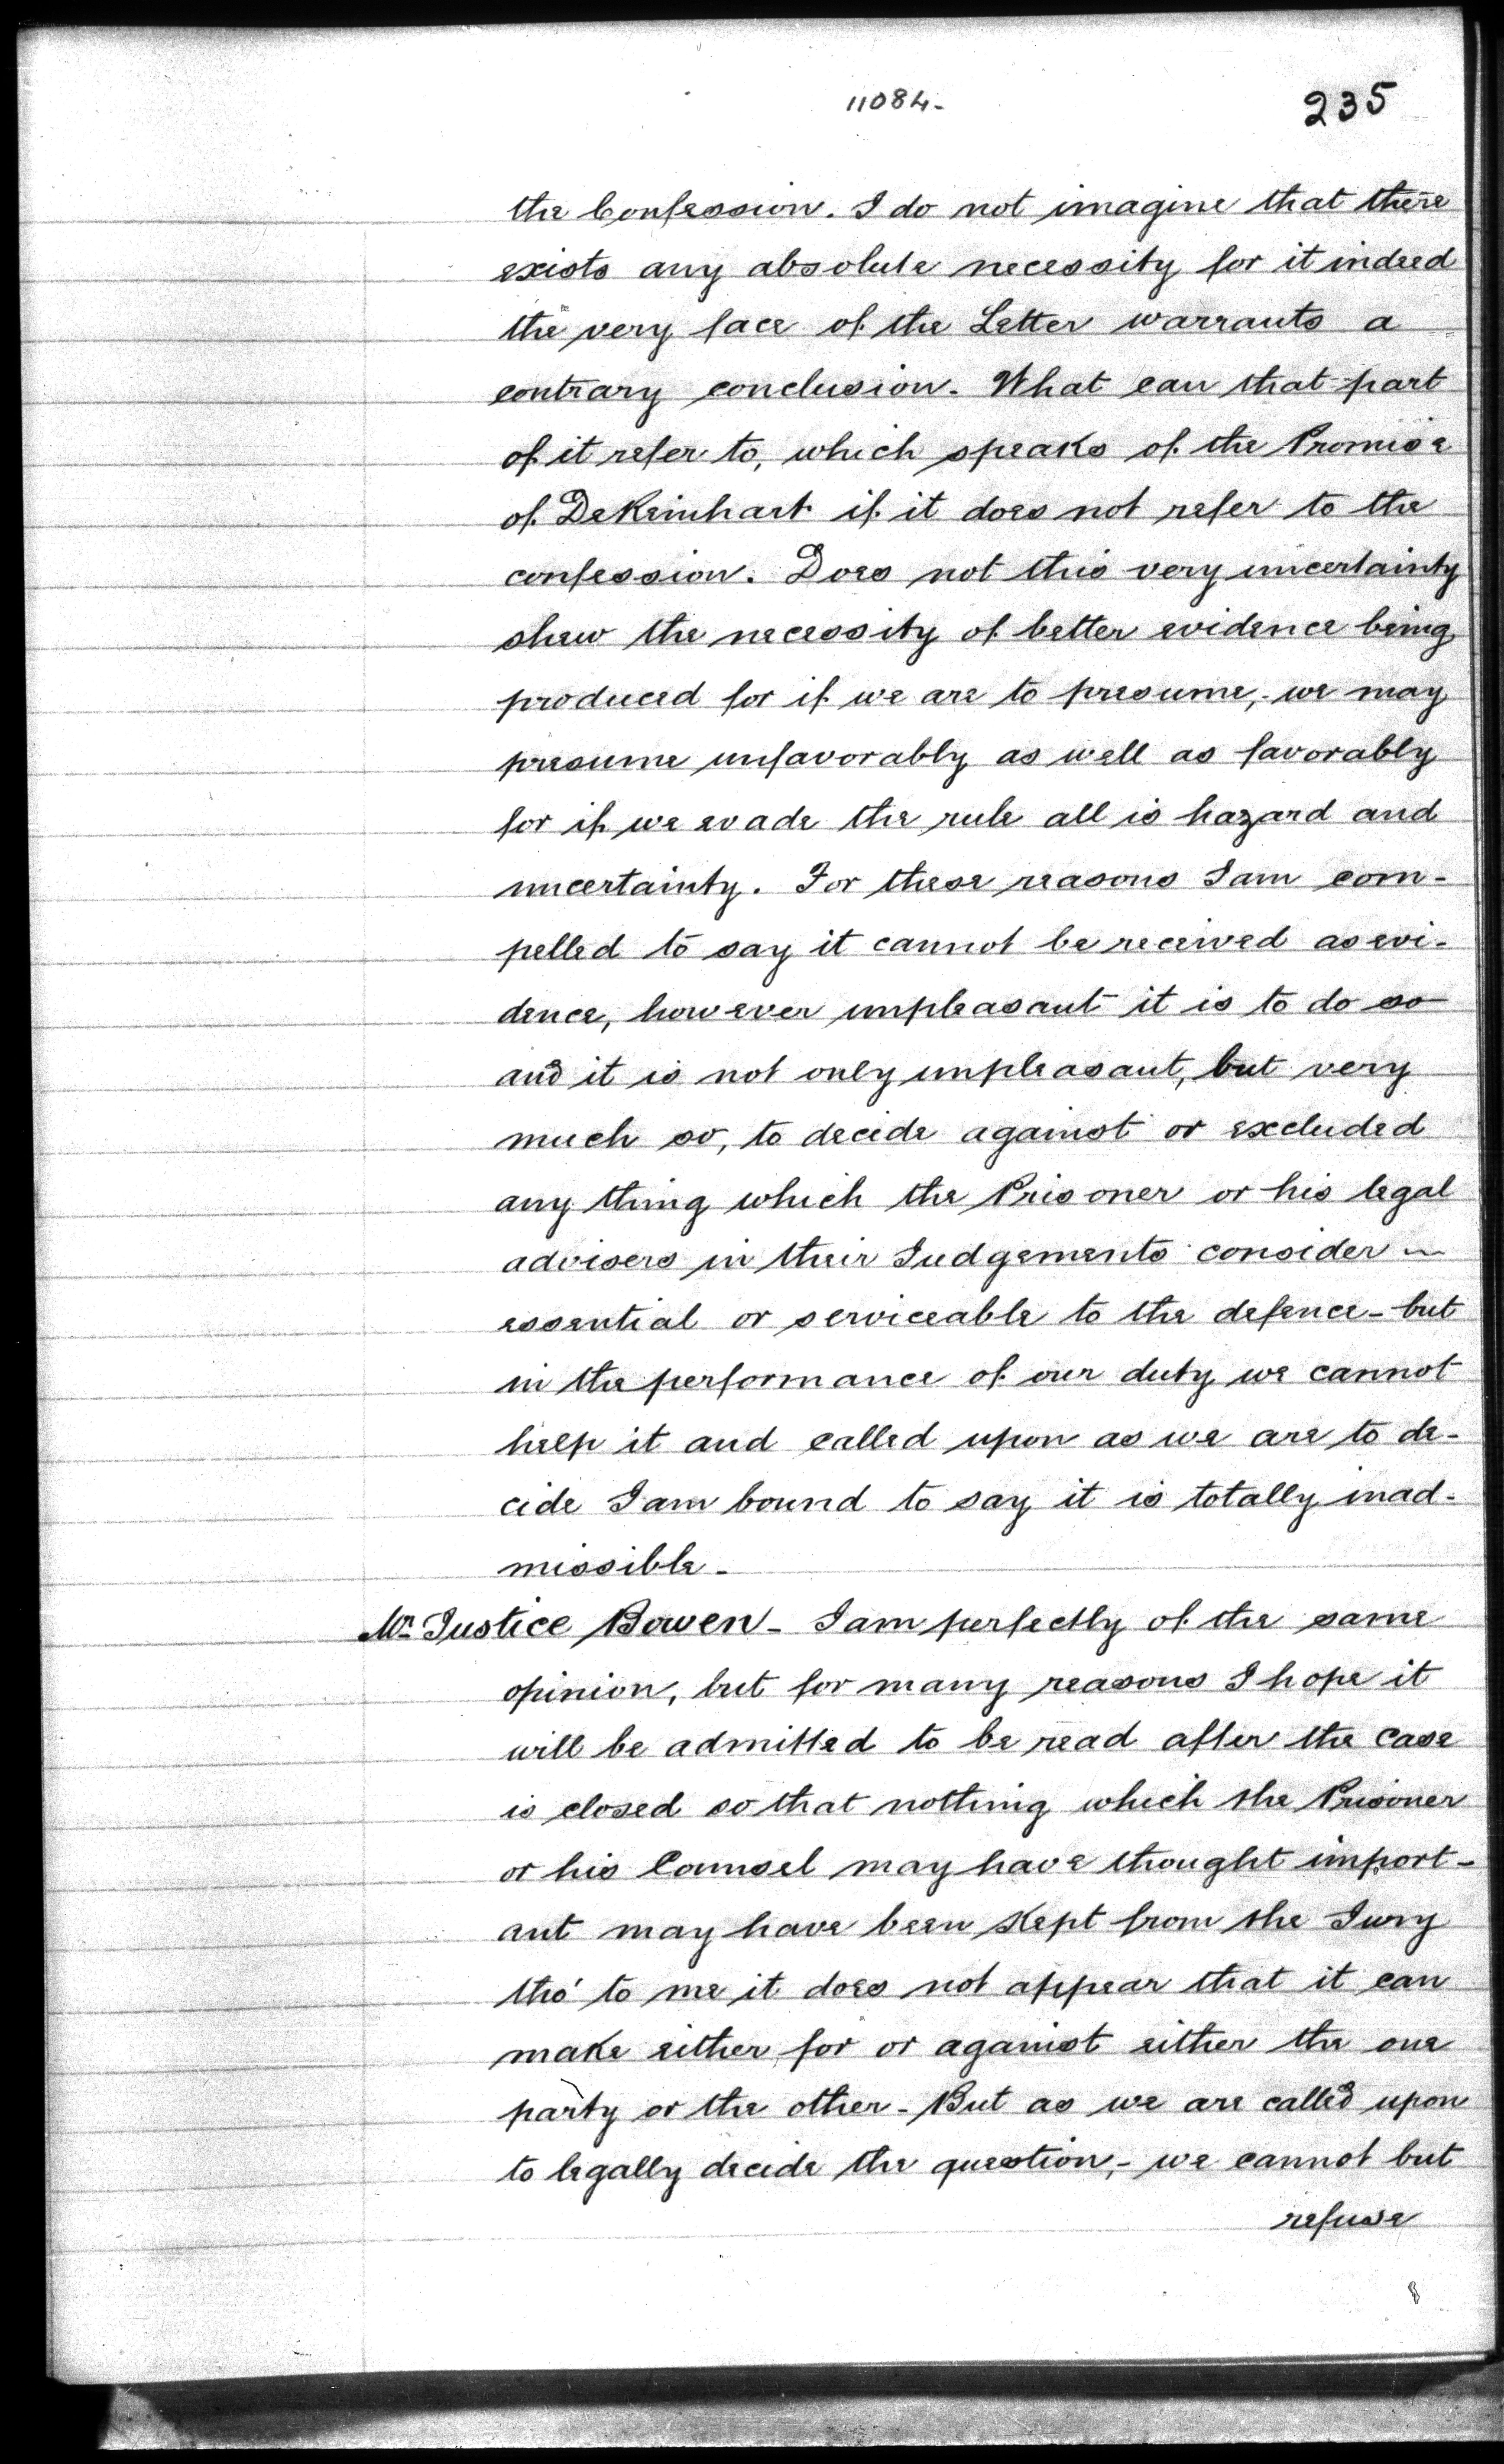 11084-
235
the Confession. I do not imagine that there
exists any absolute necessity for it indeed
the very face of the Letter warrants a
contrary conclusion. What can that part
of it refer to, which speaks of the Promise
of DeReinhart if it does not refer to the
confession. Does not this very uncertainty
shew the necessity of better evidence being
produced for if we are to presume,- we may
presume unfavorably as well as favorably
for if we evade the rule all is hazard and
uncertainty. For these reasons I am com-
pelled to say it cannot be received as evi-
dence, however unpleasant it is to do so
and it is not only unpleasant, but very
much so, to decide against or excluded
any thing which the Prisoner or his legal
advisers in their Judgements consider
essential or serviceable to the defence - but
in the performance of our duty we cannot
help it and called upon as we are to de-
cide I am bound to say it is totally inad-
missible -
Mr. Justice Bowen - I am perfectly of the same
opinion, but for many reasons I hope it
will be admitted to be read after the case
is closed so that nothing which the Prisoner
or his Counsel may have thought import-
ant may have been kept from the Jury
tho' to me it does not appear that it can
make either for or against either the one
party or the other - But as we are called upon
to legally decide the question,- we cannot but
refuse